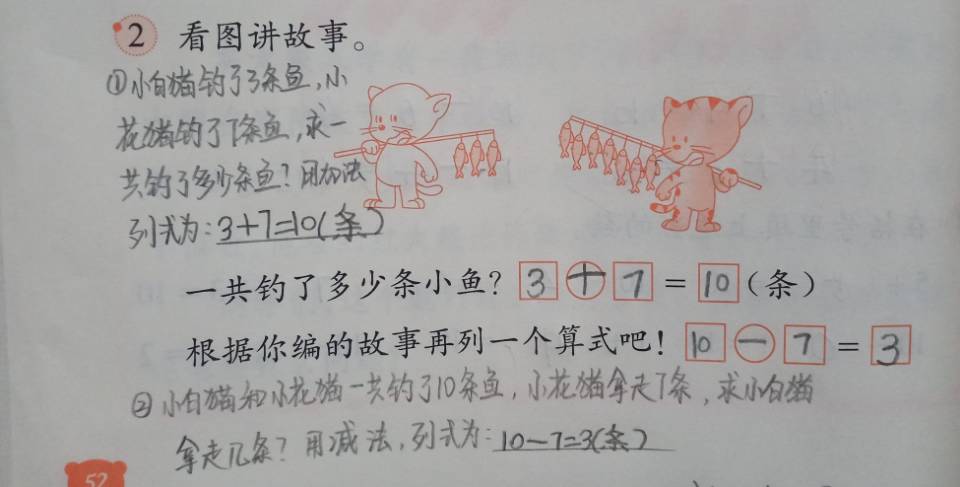 2 看图讲故事。
①小白猫钓了3条鱼,小
花猫钓了7条鱼,求一
共钓了多少条鱼?用加法
列式为:3+7=10(条)
一共钓了多少条小鱼? 3+7=10(条)
根据你编的故事再列一个算式吧! 10-7=3
②小白猫和小花猫一共钓了10条鱼,小花猫拿走7条,求小白猫
拿走几条?用减法,列式为:10-7=3(条)
52